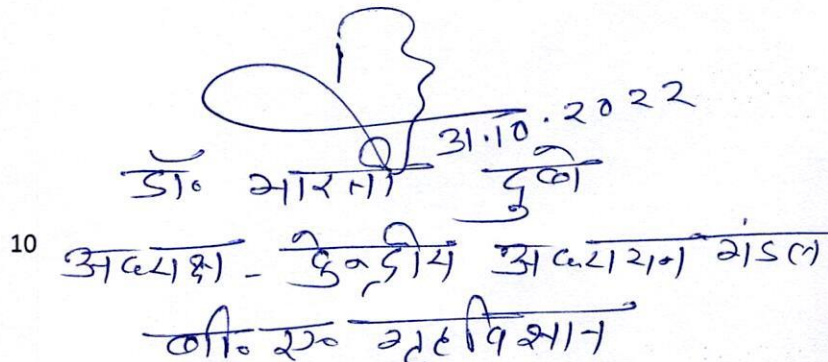 31.10.2022
डॉ. भारती दुबे
10
अध्यक्ष - केन्द्रीय अध्ययन मंडल
बी. ए. गृहविज्ञान